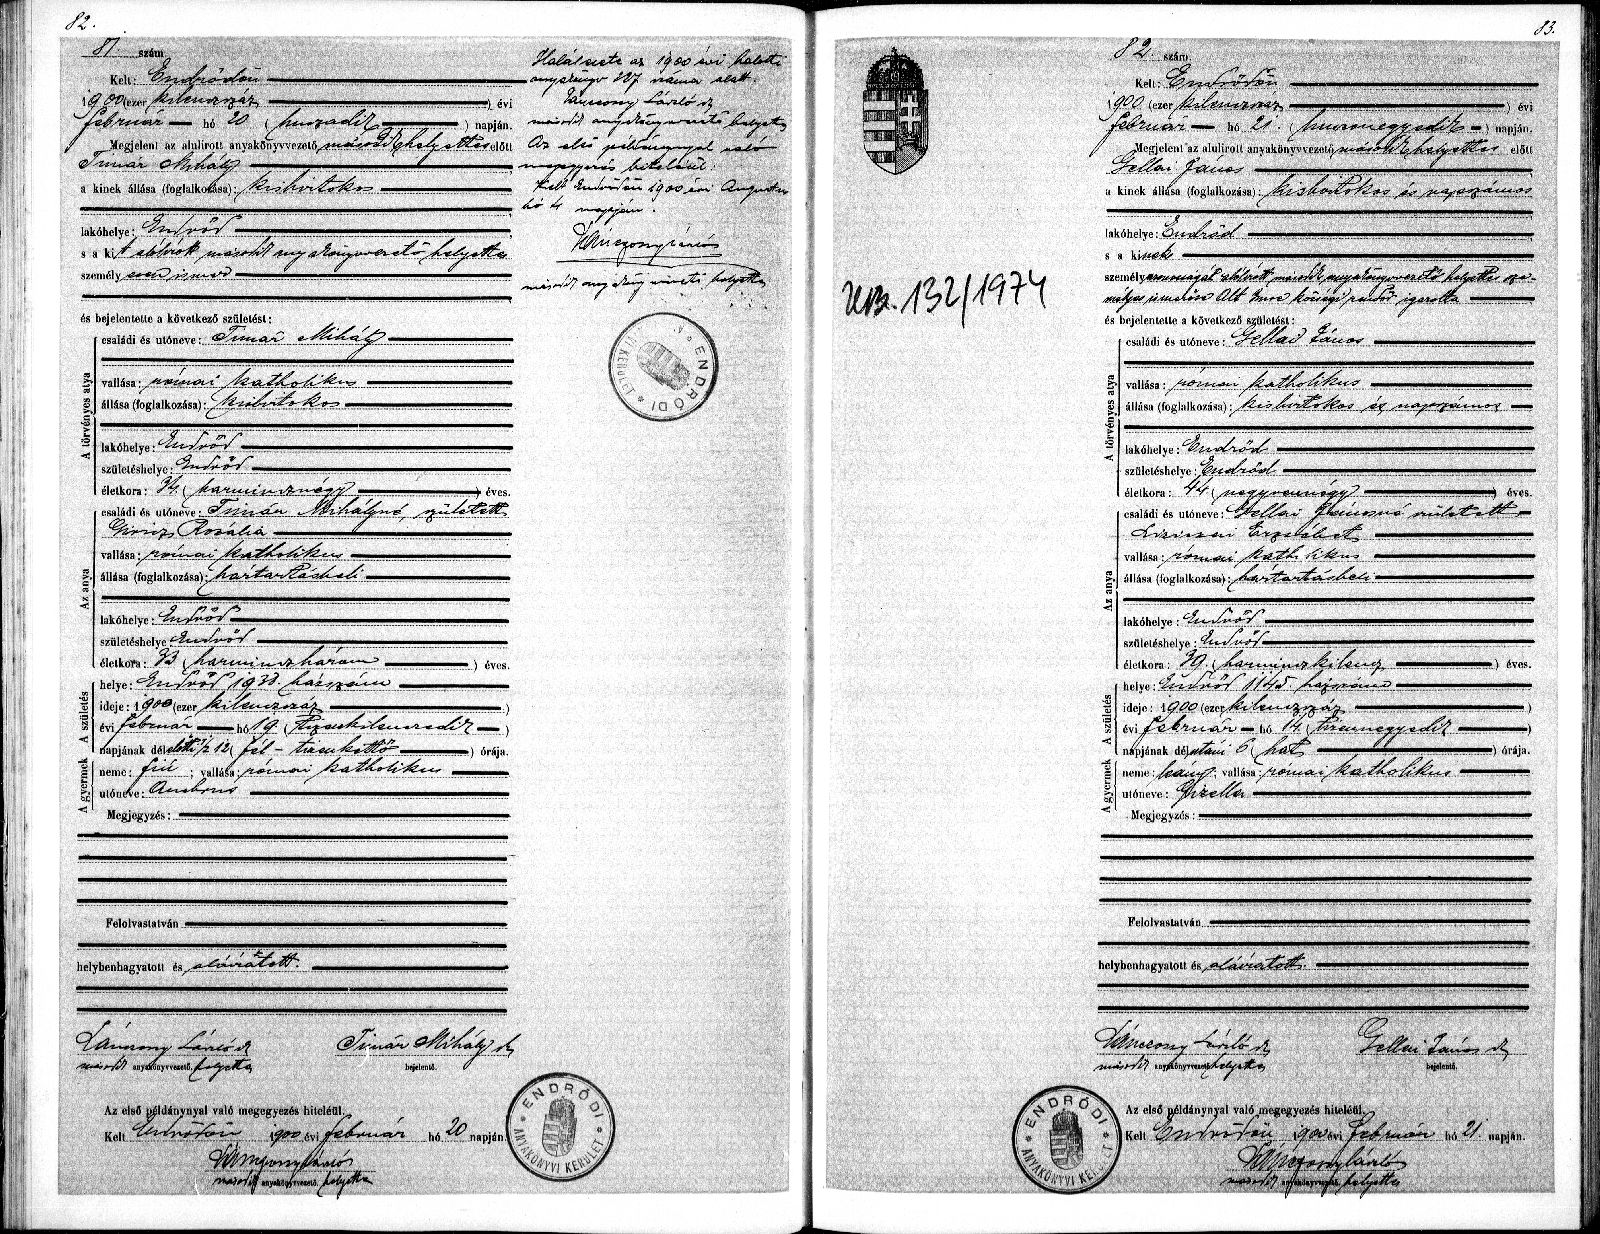 82.
81. szám
Kelt: Endrődön
1900 (ezer kilenczszáz) évi
február hó 20 (huszadik) napján.
Megjelent az alulirott anyakönyvvezető második helyettes előtt
Timár Mihály
a kinek állása (foglalkozása): kisbirtokos
lakóhelye: Endrőd
s a kit alólirott második anyakönyvvezető helyettes
személyesen ismer
és bejelentette a következő születést:
A törvényes atya
családi és utóneve: Timár Mihály
vallása: római katholikus
állása (foglalkozása): kisbirtokos
lakóhelye: Endrőd
születéshelye: Endrőd
életkora: 34 (harmincznégy) éves.
Az anya
családi és utóneve: Timár Mihályné, született
Giricz Rozália
vallása: római katholikus
állása (foglalkozása): háztartásbeli
lakóhelye: Endrőd
születéshelye Endrőd
életkora: 33 (harminczhárom) éves.
A születés
helye: Endrőd 1938. házszám
ideje: 1900 (ezer kilenczszáz)
évi február hó 19. (tizenkilenczedik)
napjának délelőtti 1/2 12 (fél-tizenkettő) órája.
A gyermek
neme: fiú; vallása: római katholikus
utóneve: Ambrus
Megjegyzés:
Felolvastatván
helybenhagyatott és aláiratott.
Lánczony László sk Timár Mihály sk
második anyakönyvvezető helyettes bejelentő.
Az első példánynyal való megegyezés hiteléül.
Kelt Endrődön 1900 évi február hó 20 napján.
Lánczony László
második anyakönyvvezető helyettes
ENDRŐDI ANYAKÖNYVI KERÜLET
Halálesete az 1900 évi halotti
anyakönyv 127 száma alatt.
Lánczony László sk
második anyakönyvvezető helyettes
Az első példánynyal való
megegyezés hiteléül.
Kelt Endrődön 1900 évi Augusztus
hó 4 napján.
Lánczony László
második anyakönyvvezető helyettes
ENDRŐDI ANYAKÖNYVI KERÜLET
83.
132/1974
82. szám
Kelt: Endrődön
1900. (ezer kilenczszáz) évi
február hó 21. (huszonegyedik) napján.
Megjelent az alulirott anyakönyvvezető, második helyettes előtt
Gellai János
a kinek állása (foglalkozása): kisbirtokos és napszámos
lakóhelye: Endrőd
s a kinek
személyazonosságát alólirott második anyakönyvvezető helyettes sze-
mélyes ismerőse Alt Imre községi rendőr igazolta
és bejelentette a következő születést:
A törvényes atya
családi és utóneve: Gellai János
vallása: római katholikus
állása (foglalkozása): kisbirtokos és napszámos
lakóhelye: Endrőd
születéshelye: Endrőd
életkora: 44 (negyvennégy) éves.
Az anya
családi és utóneve: Gellai Jánosné született
Liziczai Erzsébet
vallása: római katholikus
állása (foglalkozása): háztartásbeli
lakóhelye: Endrőd
születéshelye: Endrőd
életkora: 39. (harminczkilencz) éves.
A születés
helye: Endrőd 1145. házszám
ideje: 1900 (ezer kilenczszáz)
évi február hó 14. (tizennegyedik)
napjának délutáni 6 (hat) órája.
A gyermek
neme: leány; vallása: római katholikus
utóneve: Gizella
Megjegyzés:
Felolvastatván
helybenhagyatott és aláiratott.
Lánczony László sk Gellai János sk
második anyakönyvvezető helyettes bejelentő.
Az első példánynyal való megegyezés hiteléül.
Kelt Endrődön 1900 évi február hó 21. napján.
Lánczony László
második anyakönyvvezető helyettes
ENDRŐDI ANYAKÖNYVI KERÜLET